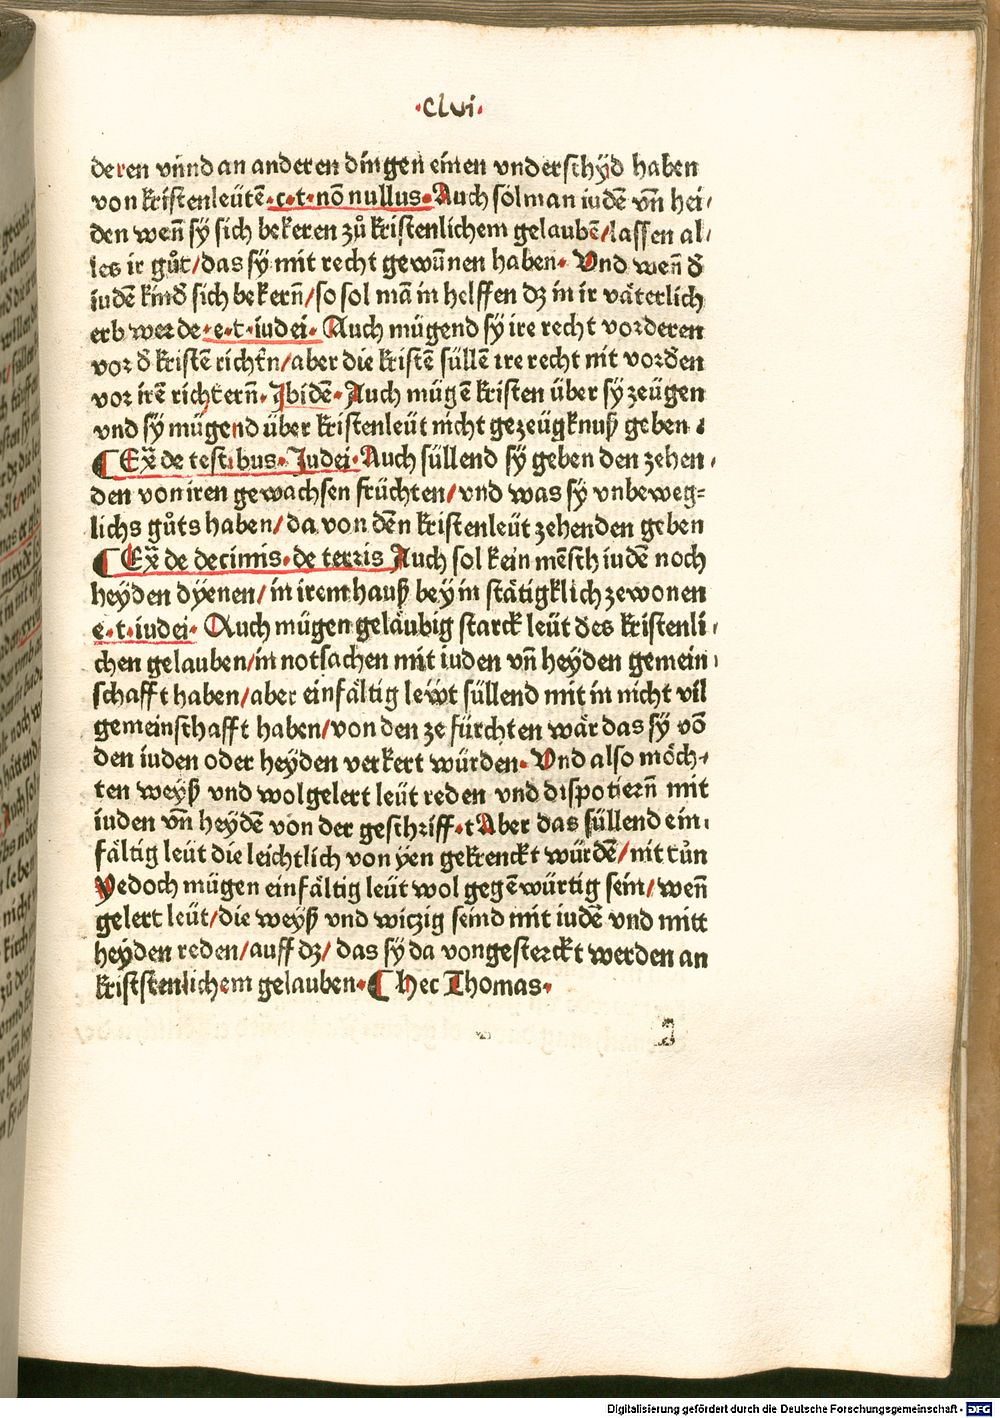 ·Clvi·
deren vnnd an anderen dingen einen vnderschyd haben
von kristenleütē·c·t·nō nullus·Auch sol man iudē vn̄ hei/
den wen̄ sÿ sich bekeren zů kristenlichem gelaubē/lassen al/
les ir gůt/das sÿ mit recht gewūnen haben· Vnd wen̄ đ
iudē kinđ sich bekern̄/so sol mā in helffen dz in ir väterlich
erb werde·e·t·iudei· Auch mügend sÿ ire recht vorderen
vor đ kristē richtn̄/aber die kristē süllē ire recht nit vorden
vor irē richtern̄·Jbidē·Auch mügē kristen über sÿ zeügen
vnd sÿ mügend über kristenleüt nicht gezeügknuß geben ·
¶ Ex̄ de testibus·Judei·Auch süllend sÿ geben den zehen/
den von iren gewachsen früchten/vnd was sÿ vnbeweg=
lichs gůts haben/da von dēn kristenleüt zehenden geben
¶ Ex̄ de decimis·de terris Auch sol kein mēsch iudē noch
heÿden dÿenen/in irem hauß beÿ in stätigklich zewonen
e·t·iudei· Auch mügen geläubig starck leüt des kristenli/
chen gelauben/in notsachen mit iuden vn̄ heÿden gemein/
schafft haben/aber einfältig leẅt süllend mit in nicht vil
gemeinschafft haben/von den ze fürchten wär das sÿ vō
den iuden oder heÿden verkert würden· Vnd also möch/
ten weÿß vnd wolgelert leüt reden vnd dispotiern̄ mit
iuden vn̄ heÿdē von der geschriff·t Aber das süllend ein/
fältig leüt die leichtlich von ÿen gekrenckt würdē/nit tůn
Yedoch mügen einfältig leüt wol gegēwürtig sein/wen̄
gelert leüt/die weÿß vnd witzig seind mit iudē vnd mitt
heÿden reden/auff dz/ das sÿ da von gesterckt werden an
kriststenlichem gelauben·¶ Hec Thomas·
Digitalisierung gefördert durch die Deutsche Forschungsgemeinschaft - DFG